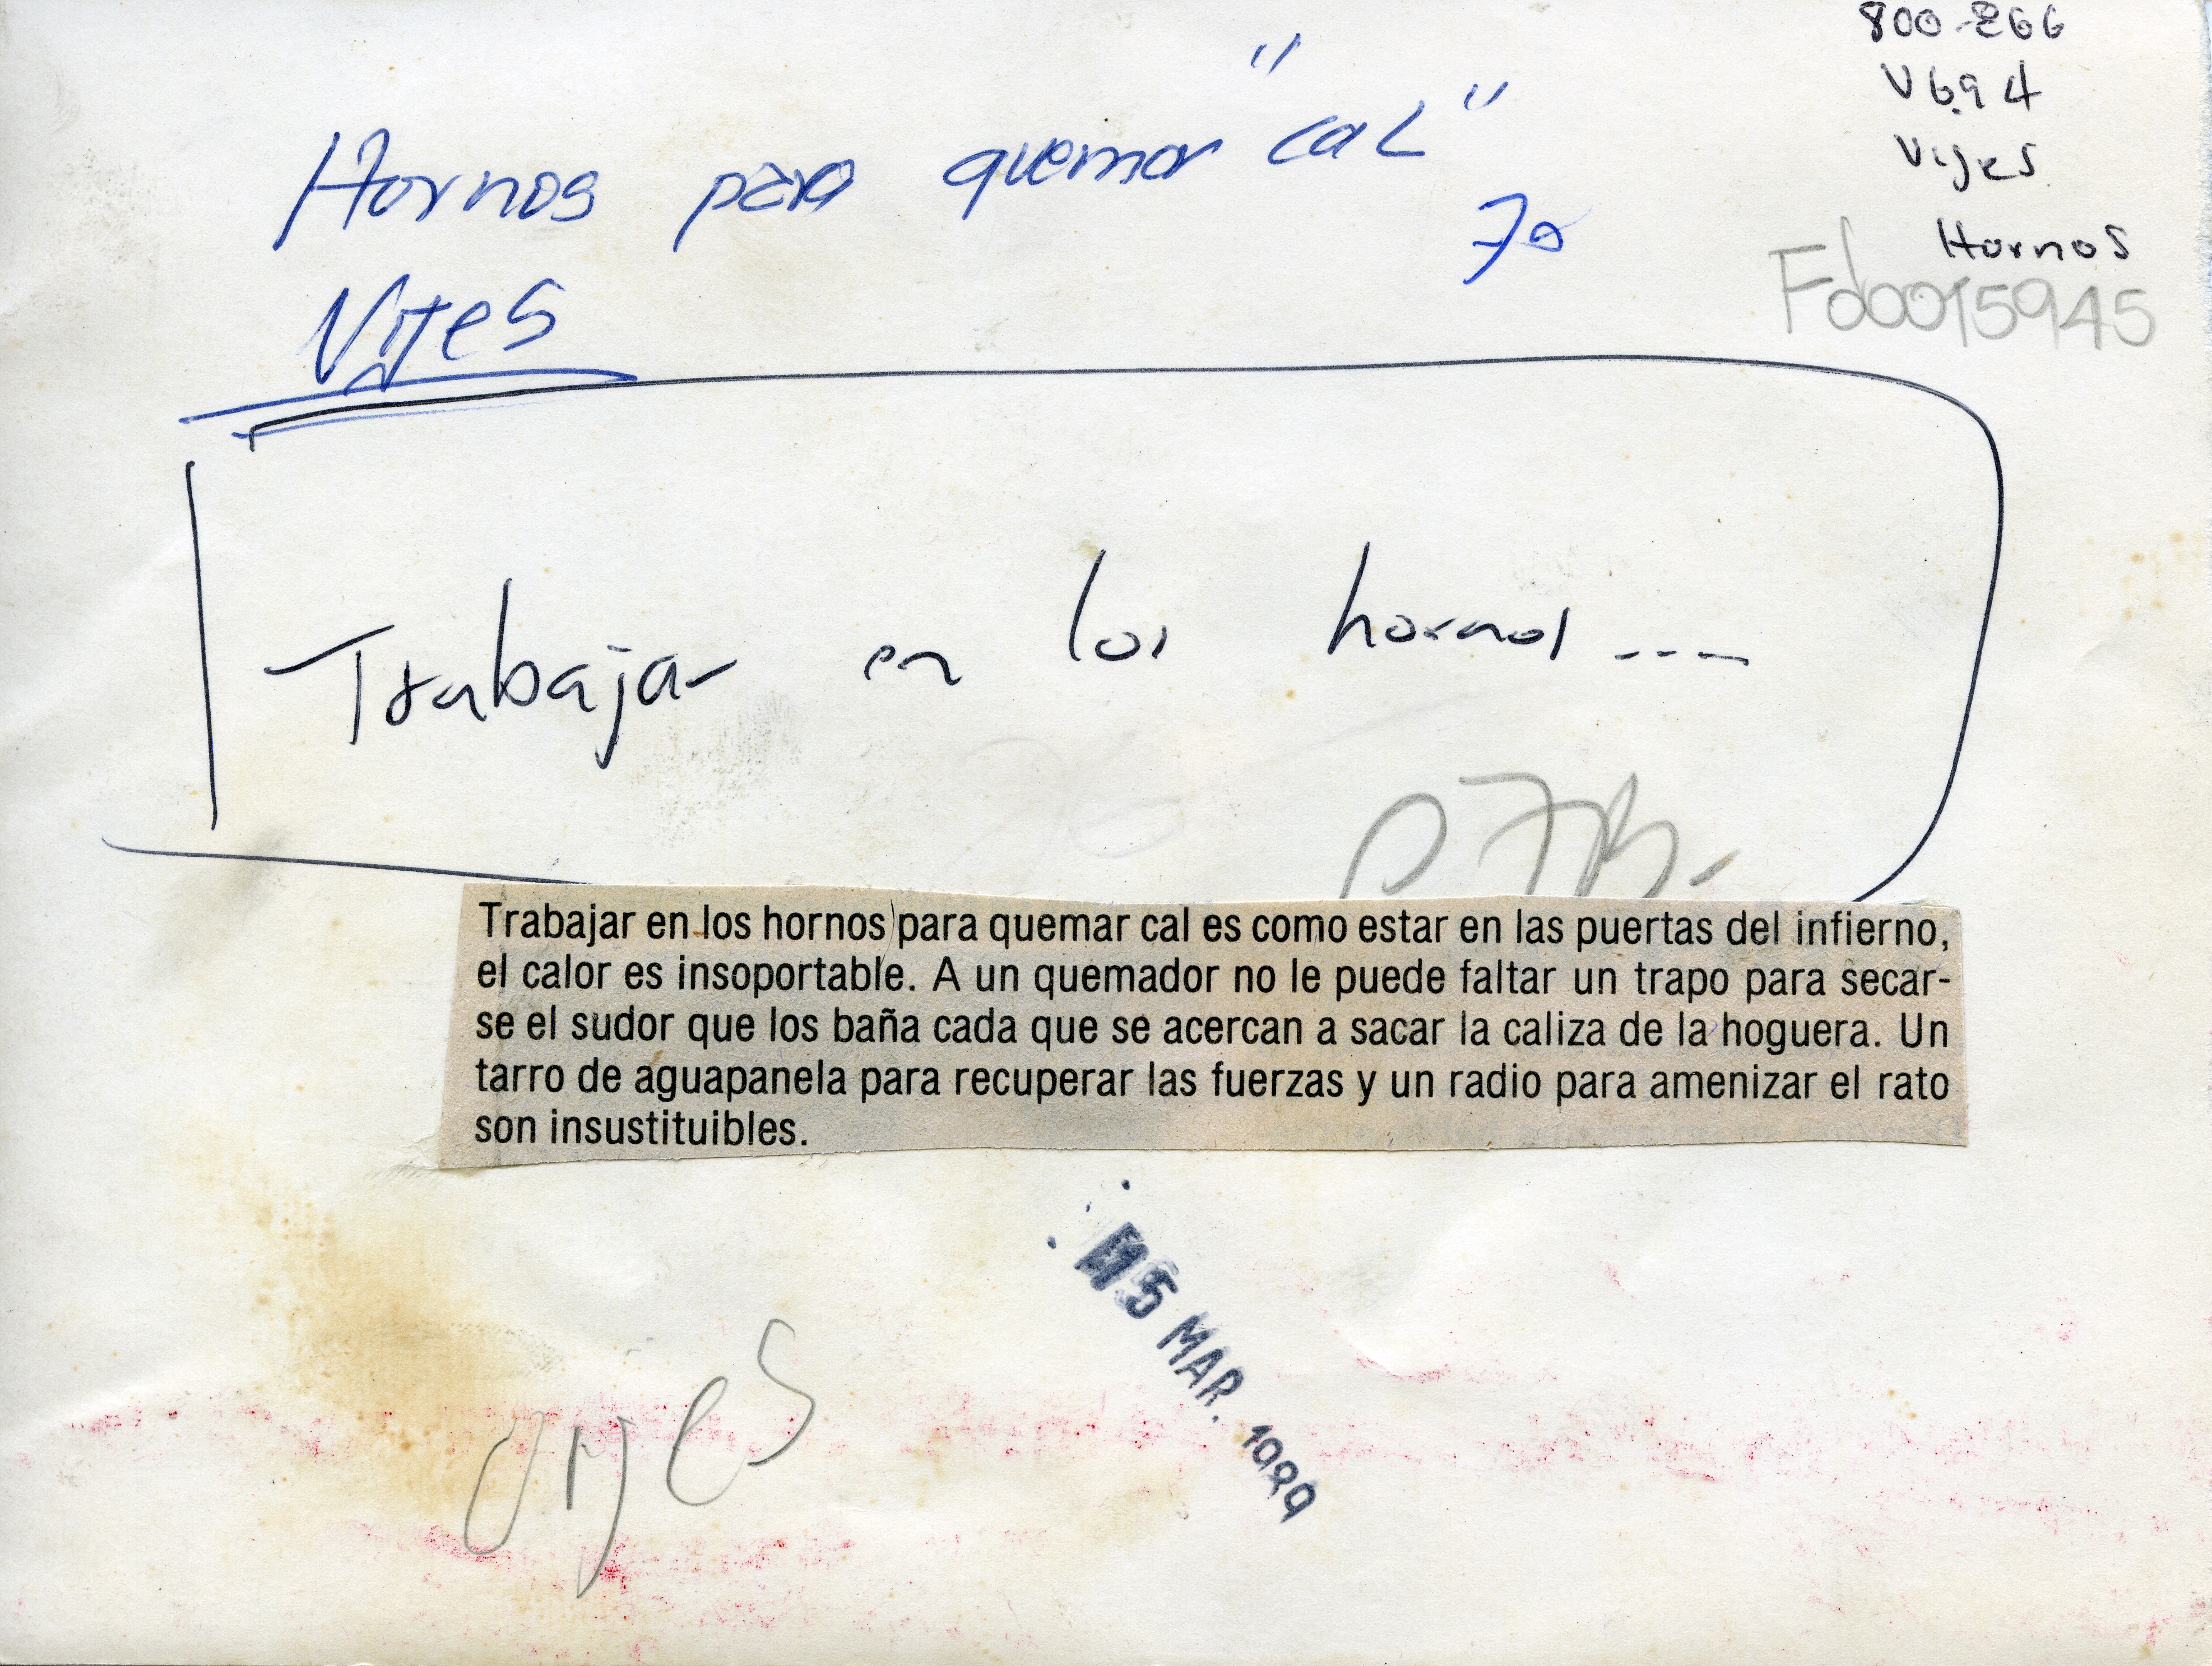 800-266
V694
Vijes
Hornos
Fd0015945
Hornos para quemar "cal"
Vijes
Trabajar en los hornos ----
Trabajar en los hornos para quemar cal es como estar en las puertas del infierno,
el calor es insoportable. A un quemador no le puede faltar un trapo para secar-
se el sudor que los baña cada que se acercan a sacar la caliza de la hoguera. Un
tarro de aguapanela para recuperar las fuerzas y un radio para amenizar el rato
son insustituibles.
15 MAR. 1999